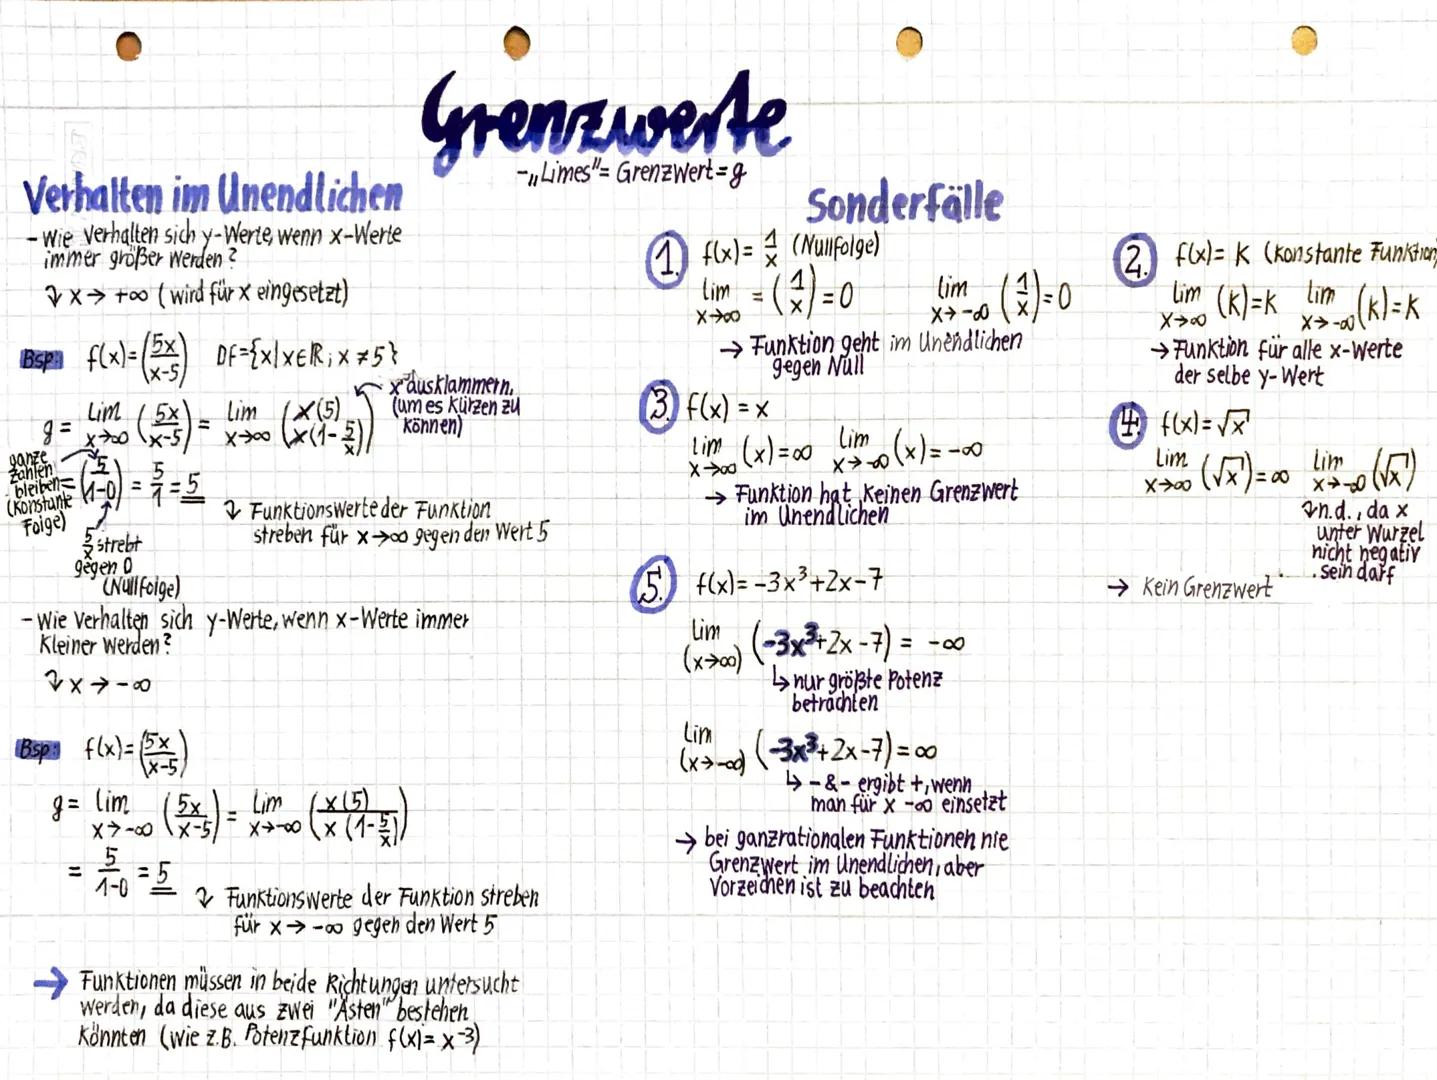 Grenzwerte
-„Limes"= Grenzwert=g
Verhalten im Unendlichen
- Wie verhalten sich y-Werte, wenn x-Werte
immer größer werden?
↴ x→ +∞ (wird für x eingesetzt)
Bsp: f(x)=(5x/(x-5)) DF={x|x∈ℝ; x≠5}
x ausklammern,
(um es kürzen zu
können)
g= lim x→∞ (5x/(x-5)) = lim x→∞ (x(5)/(x(1-5/x)))
ganze
zahlen
bleiben=
(konstante
Folge)
(5/(1-0)) = 5/1 = 5
5/x strebt
gegen 0
(Nullfolge)
↴ Funktionswerte der Funktion
streben für x→∞ gegen den Wert 5
- Wie verhalten sich y-Werte, wenn x-Werte immer
kleiner werden?
↴ x→ -∞
Bsp: f(x)=(5x/(x-5))
g= lim x→-∞ (5x/(x-5)) = lim x→-∞ (x(5)/(x(1-5/x)))
= 5/(1-0) = 5
↴ Funktionswerte der Funktion streben
für x→ -∞ gegen den Wert 5
→ Funktionen müssen in beide Richtungen untersucht
werden, da diese aus zwei "Ästen" bestehen
könnten (wie z.B. Potenzfunktion f(x)= x⁻³)
Sonderfälle
1. f(x)= 1/x (Nullfolge)
lim x→∞ =(1/x)=0 lim x→-∞ (1/x)=0
→ Funktion geht im Unendlichen
gegen Null
2. f(x)= K (konstante Funktion)
lim x→∞ (k)=K lim x→-∞ (k)=K
→ Funktion für alle x-Werte
der selbe y-Wert
3. f(x) = x
lim x→∞ (x)=∞ lim x→-∞ (x)= -∞
→ Funktion hat keinen Grenzwert
im Unendlichen
4. f(x)=√x
lim x→∞ (√x)=∞ lim x→-∞ (√x)
↴n.d., da x
unter Wurzel
nicht negativ
sein darf
→ Kein Grenzwert
5. f(x)= -3x³+2x-7
lim (x→∞) (-3x³+2x-7) = -∞
↳ nur größte Potenz
betrachten
lim (x→-∞) (-3x³+2x-7)=∞
↳ -&- ergibt +, wenn
man für x -∞ einsetzt
→ bei ganzrationalen Funktionen nie
Grenzwert im Unendlichen, aber
Vorzeichen ist zu beachten